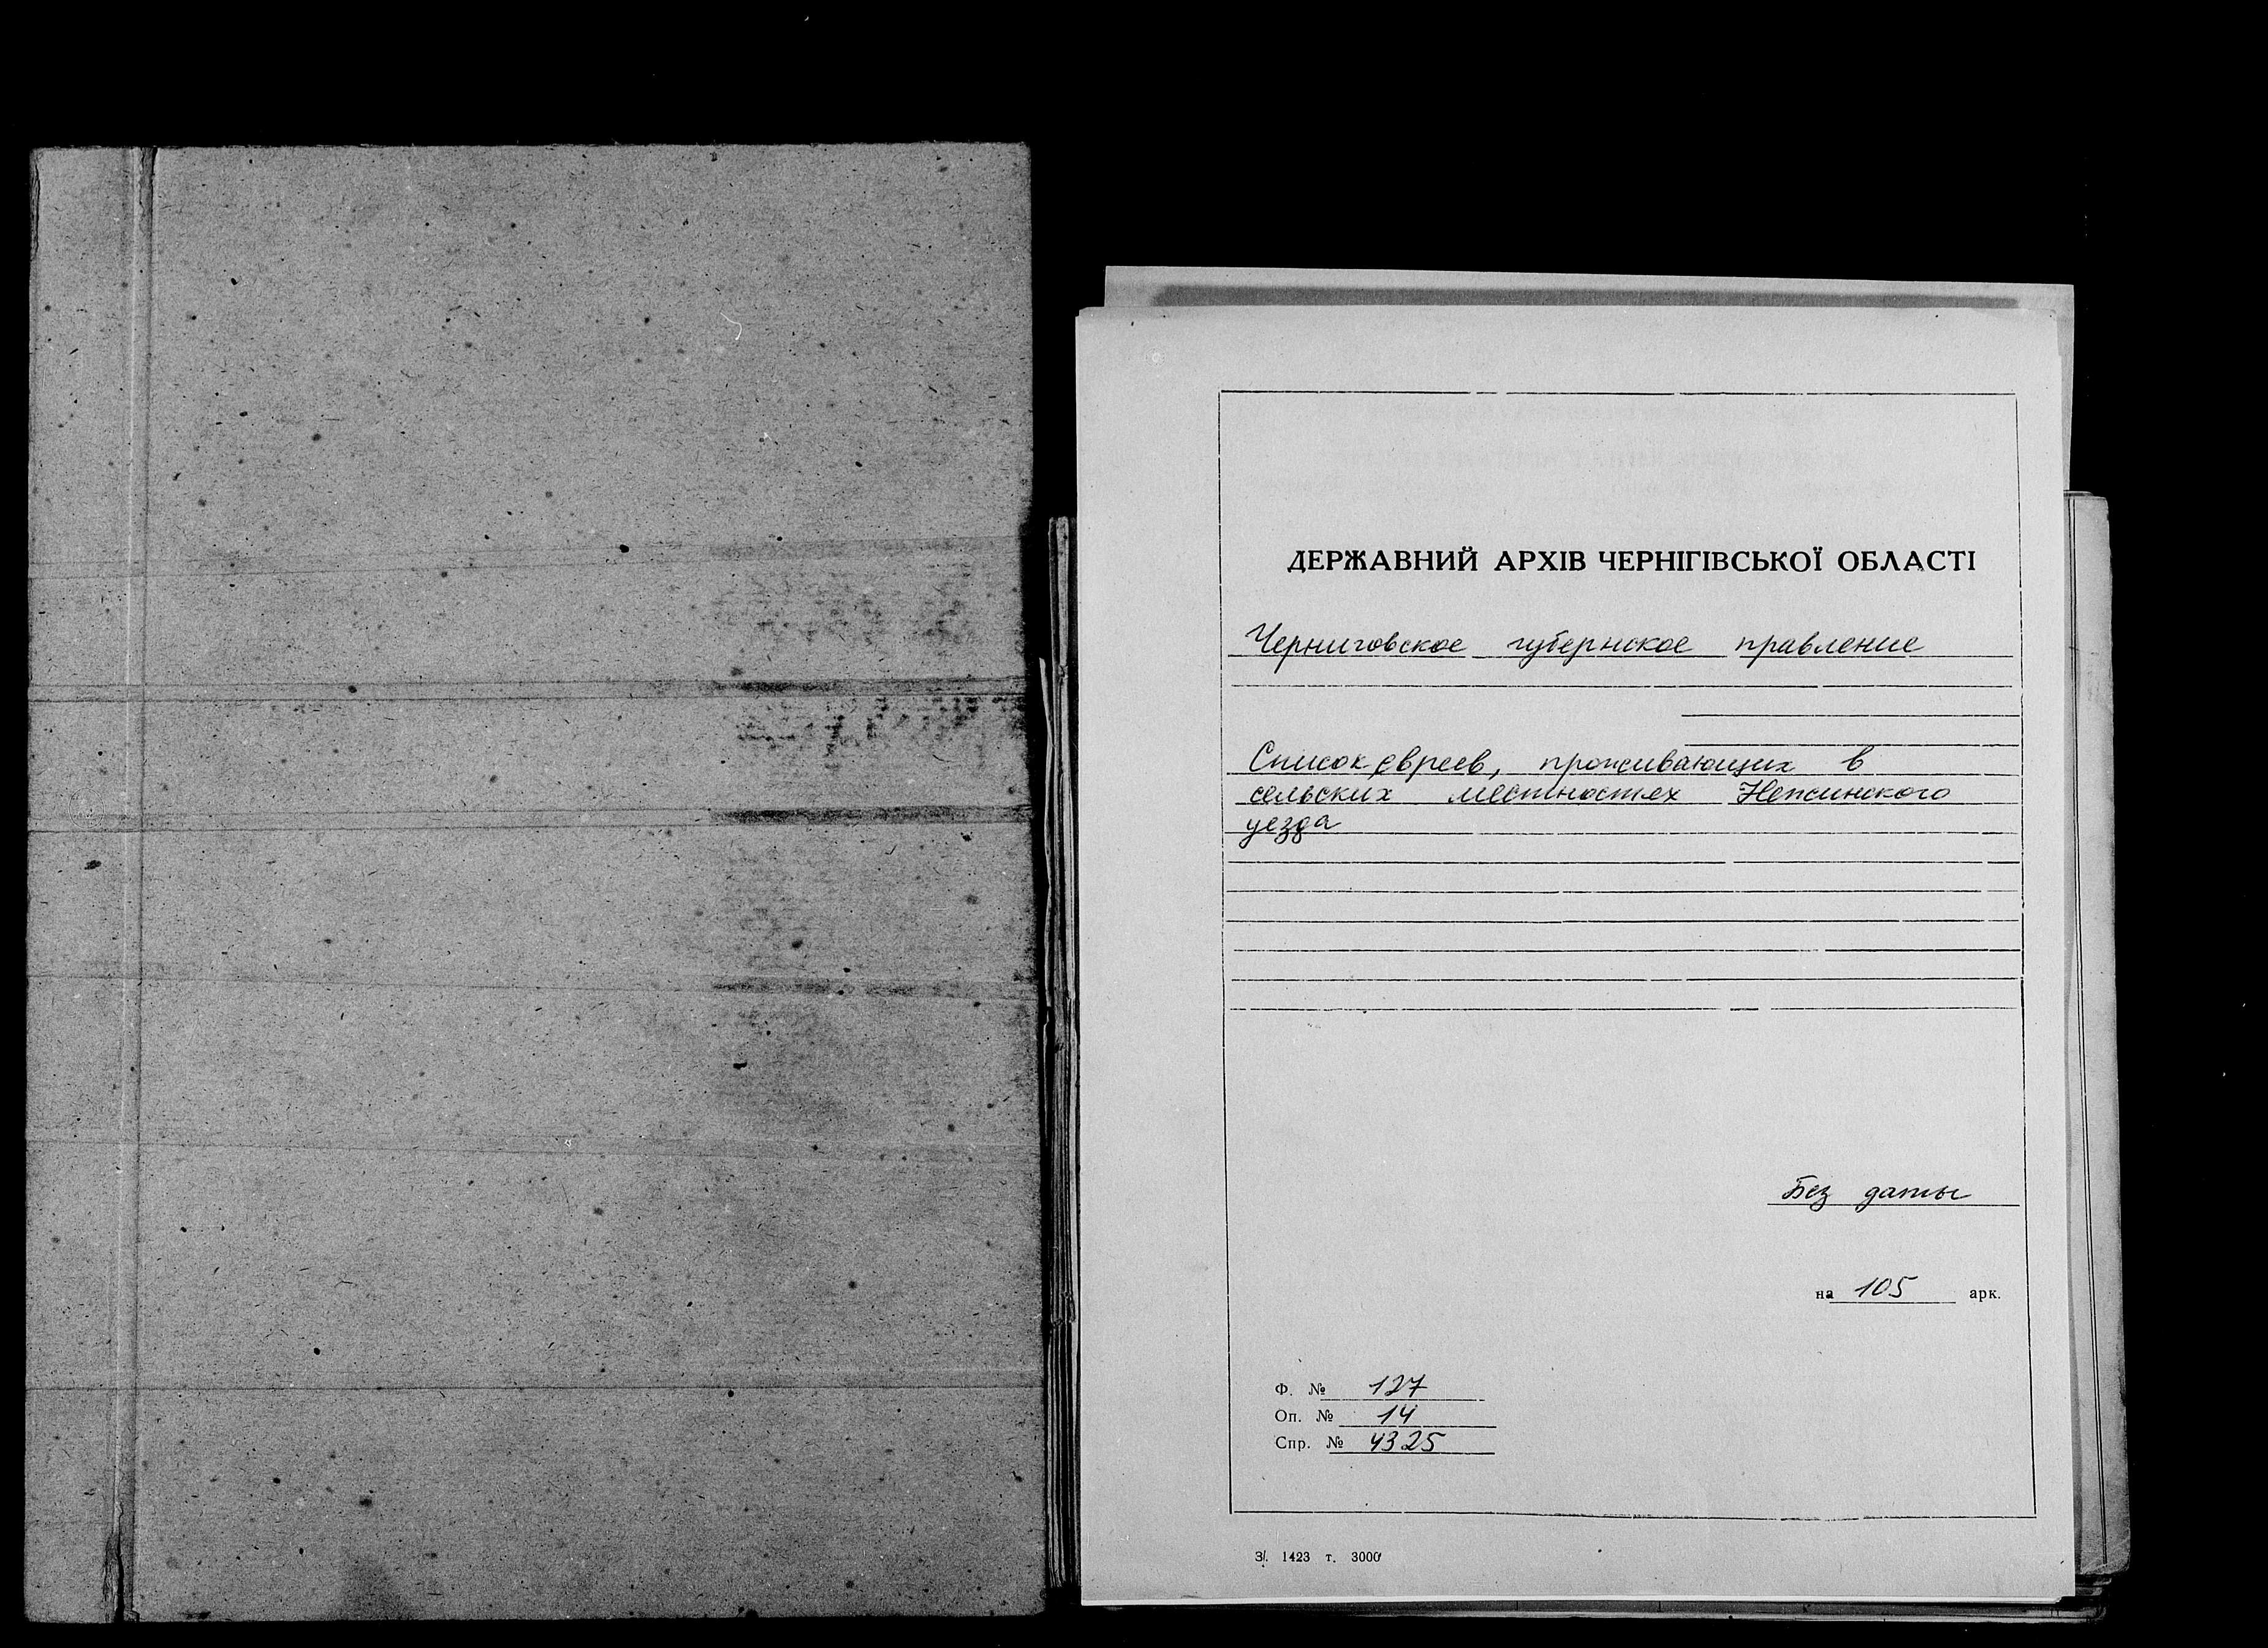 ДЕРЖАВНИЙ АРХІВ ЧЕРНІГІВСЬКОЇ ОБЛАСТІ
Черниговское губернское правление
Список евреев, проживающих в
сельских местностях Нежинского
уезда
Без даты
на 105 арк.
Ф. № 127
Оп. № 14
Спр. № 4325
З. 1423 т. 3000